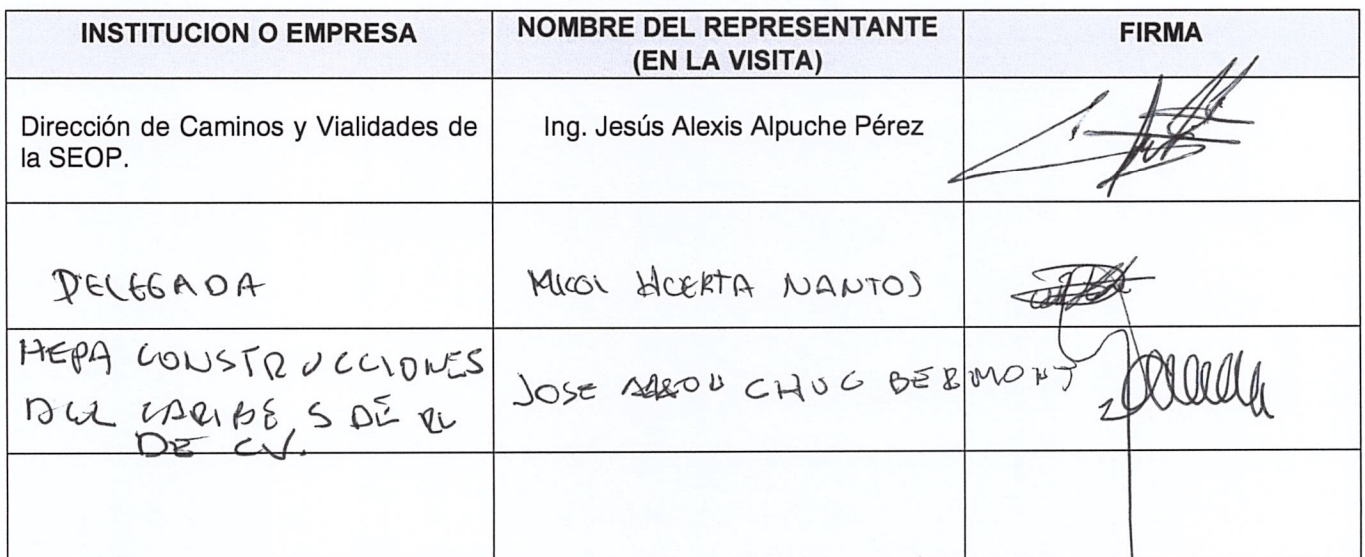 INSTITUCION O EMPRESA
NOMBRE DEL REPRESENTANTE
(EN LA VISITA)
FIRMA
Dirección de Caminos y Vialidades de
la SEOP.
Ing. Jesús Alexis Alpuche Pérez
DELEGADA
HUERTA NANTOS
HEPA CONSTRUCCIONES
DEL CARIBE S DE RL
DE CV.
JOSE CHUC BERMONT